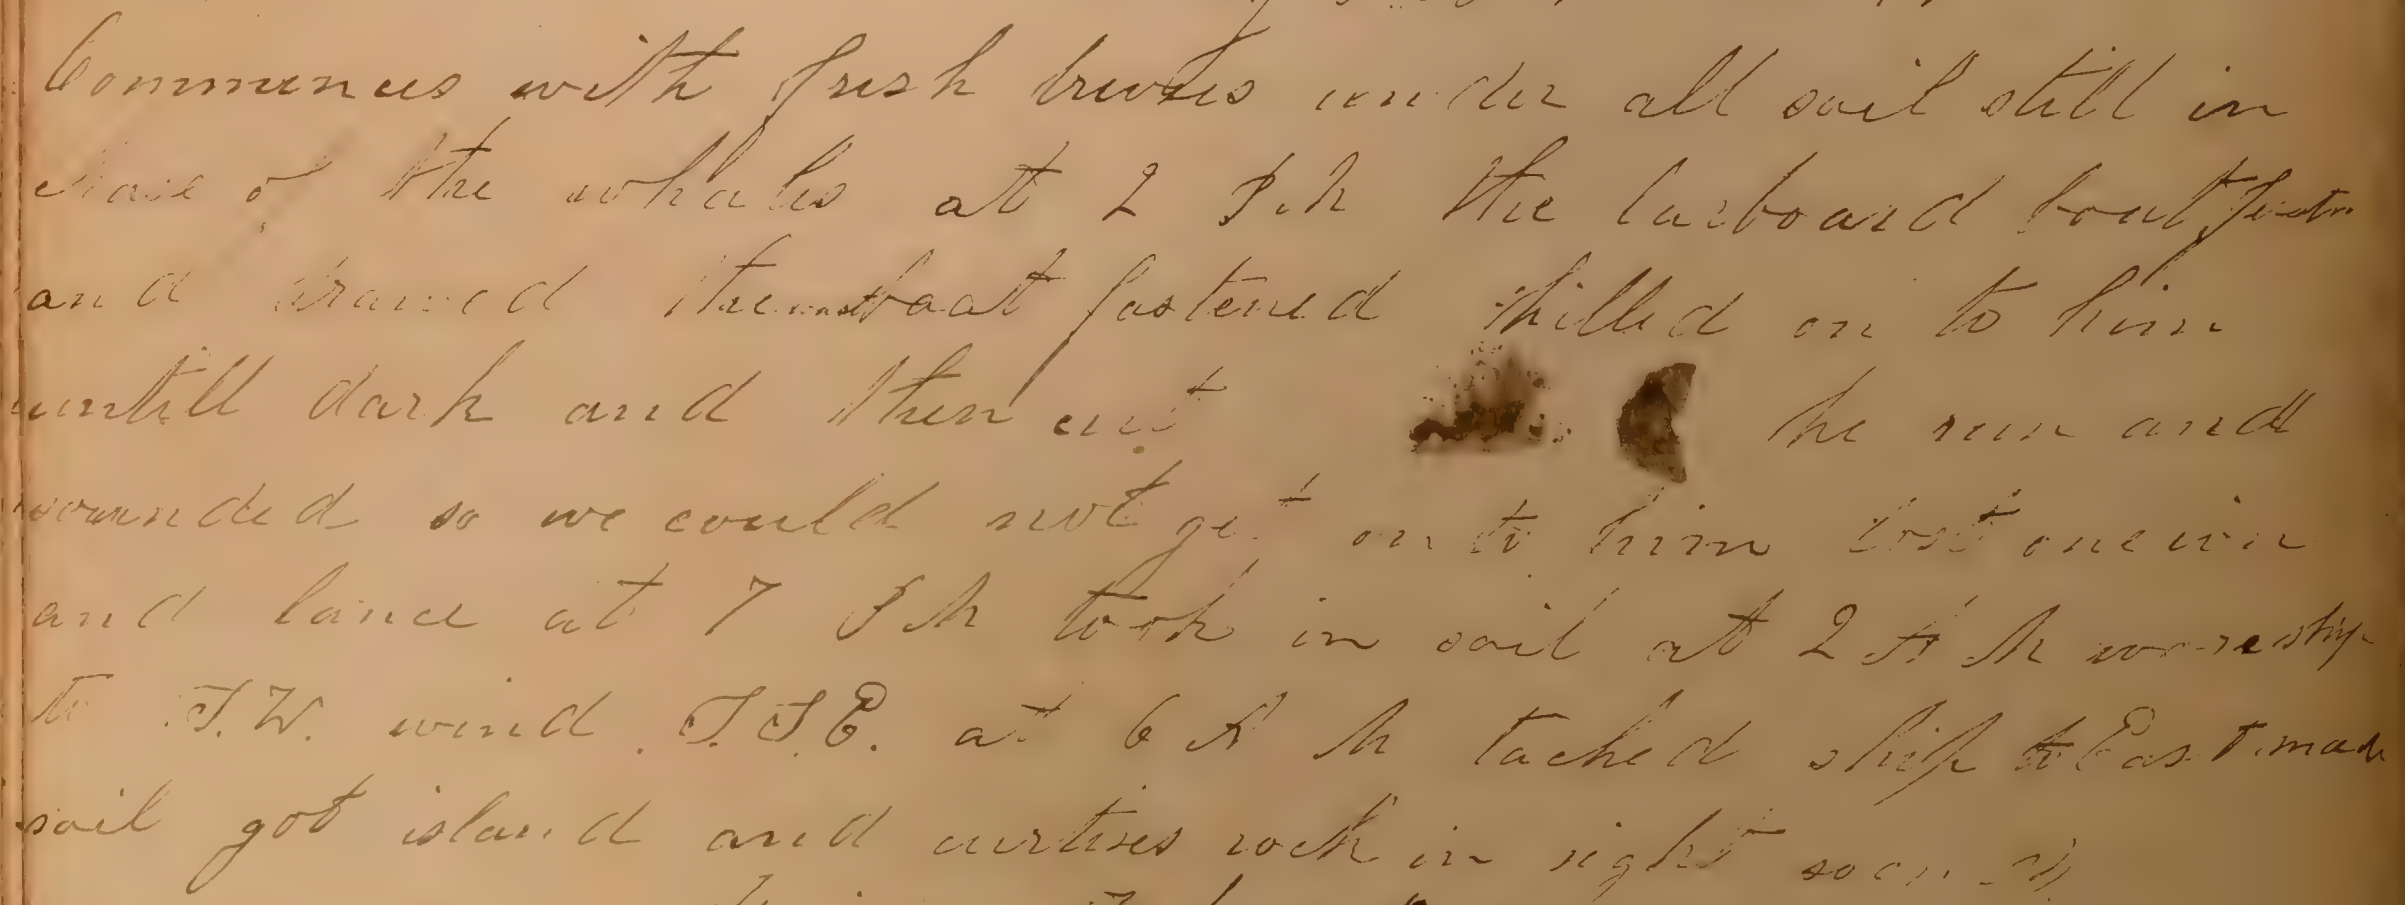 Commences with fresh breezes under all sail still in
chase of the whales at 2 P.M the larboard boat
and drawed the boat fastened hilled on to him
untill dark and then cut he run and
sounded so we could not get on to him lost one iron
and lance at 7 P M took in sail at 2 A M wore ship
to S.W. wind S.S.E. at 6 A M tacked ship to East made
sail got island and curtises rock in sight soon